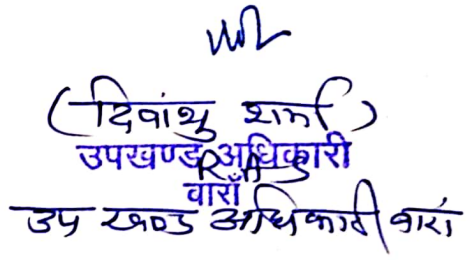 (दिवांशु शर्मा)
उपखण्ड अधिकारी
RAS
वारॉं
उप खण्ड अधिकारी बारां